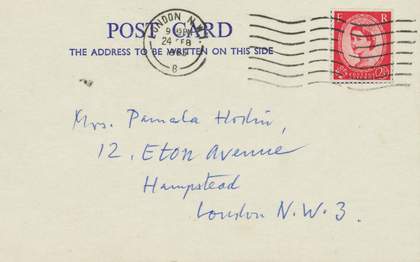 POST CARD
THE ADDRESS TO BE WRITTEN ON THIS SIDE
LONDON N.W.
24 FEB
8
E R
Mrs. Pamela Hodin,
12, Eton Avenue
Hampstead
London N.W.3.